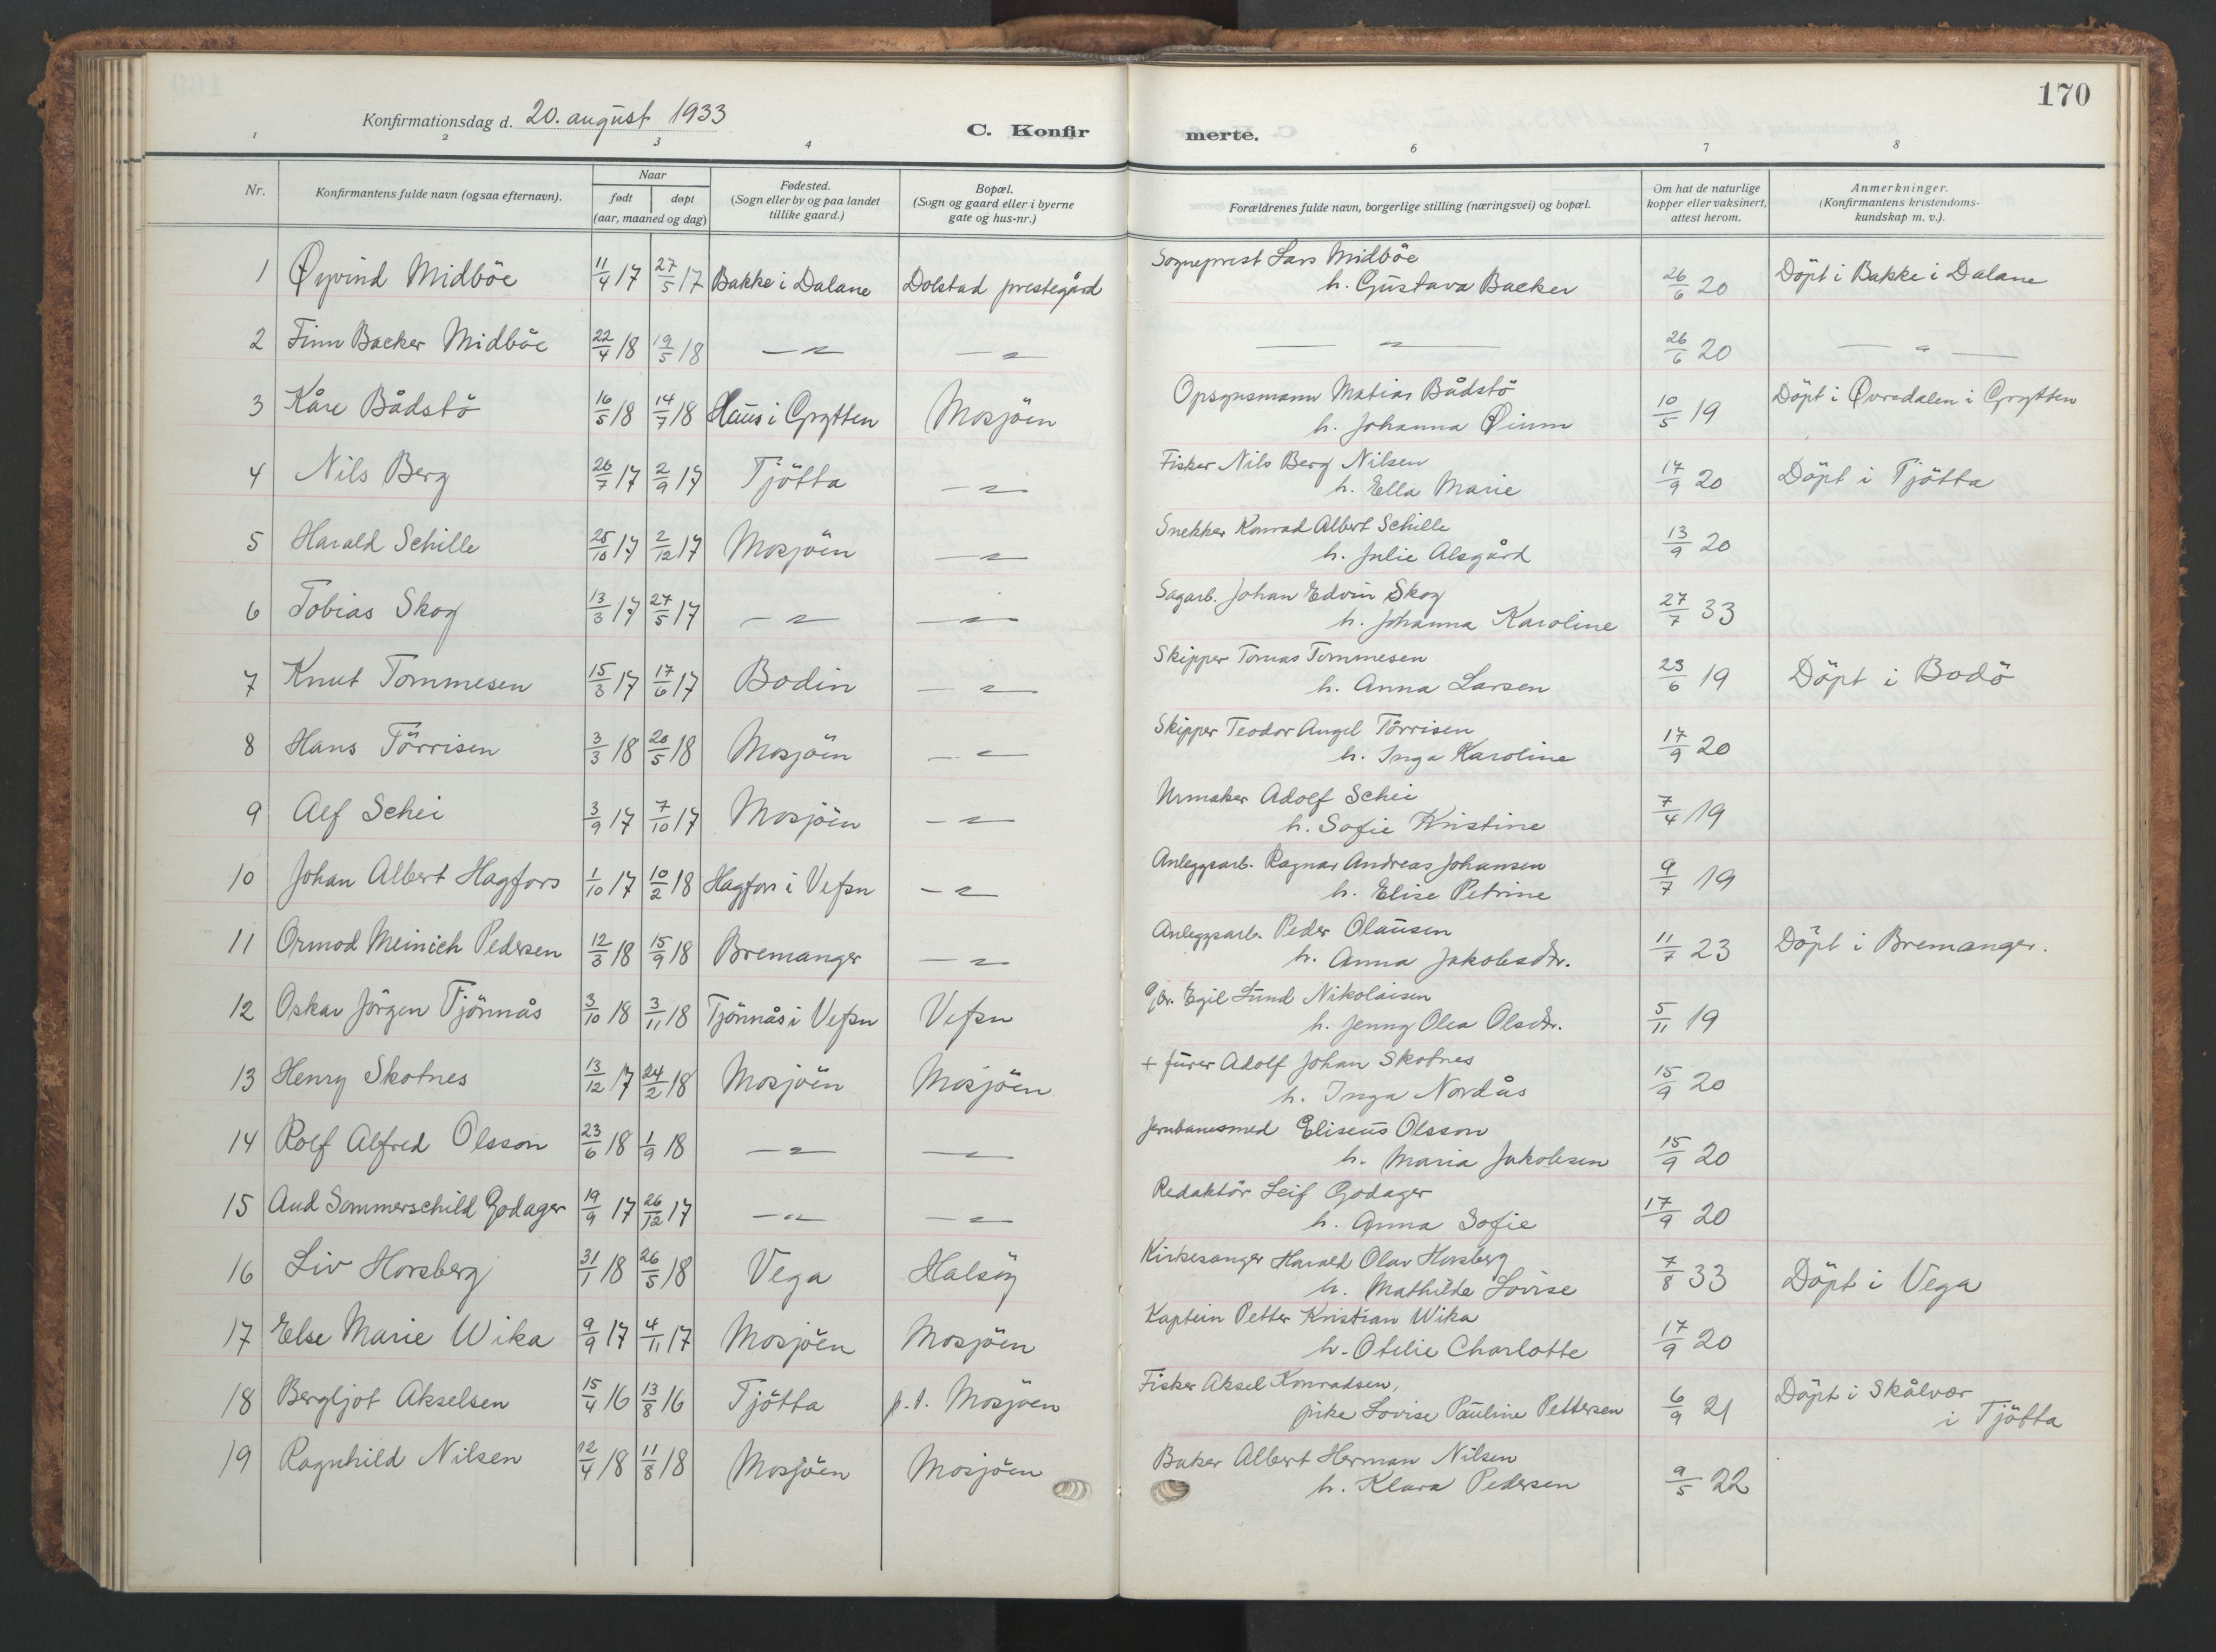 170
Konfirmationsdag d. 20. august 1933
C. Konfirmerte.
1 2 3 4 6 7 8
Nr.
Konfirmantens fulde navn (ogsaa efternavn).
Naar
født døpt
(aar, maaned og dag)
Fødested.
(Sogn eller by og paa landet
tillike gaard.)
Bopæl.
(Sogn og gaard eller i byerne
gate og hus-nr.)
Forældrenes fulde navn, borgerlige stilling (næringsvei) og bopæl.
Om hat de naturlige
kopper eller vaksinert,
attest herom.
Anmerkninger.
(Konfirmantens kristendoms-
kundskap m. v.).
1 Øyvind Midböe 11/4 17 27/5 17 Bakke i Dalane Dolstad prestegård Sogneprest Lars Midböe
h. Gustava Backer 26/6 20 Döpt i Bakke i Dalane
2 Finn Backer Midböe 22/4 18 19/5 18 — " — — " — — " — 26/6 20 — " —
3 Kåre Bådstö 16/5 18 14/7 18 Haus i Grytten Mosjöen Opsynsmann Matias Bådstö
h. Johanna Øinm 10/5 19 Döpt i Øvredalen i Grytten
4 Nils Berg 26/7 17 2/9 17 Tjötta — " — Fisker Nils Berg Nilsen
h. Ella Marie 17/9 20 Döpt i Tjötta
5 Harald Schille 25/10 17 2/12 17 Mosjöen — " — Snekker Konrad Albert Schille
h. Julie Alsgård 13/9 20
6 Tobias Skog 13/3 17 27/5 17 — " — — " — Sagarb. Johan Edvin Skog
h. Johanna Karoline 27/7 33
7 Knut Tommesen 15/3 17 17/6 17 Bodin — " — Skipper Tomas Tommesen
h. Anna Larsen 23/6 19 Döpt i Bodö
8 Hans Törrisen 3/3 18 20/5 18 Mosjöen — " — Skipper Teodor Angel Törrisen
h. Inga Karoline 17/9 20
9 Alf Schei 3/9 17 7/10 17 Mosjöen — " — Urmaker Adolf Schei
h. Sofie Kristine 7/4 19
10 Johan Albert Hagfors 1/10 17 10/2 18 Hagfors i Vefsn — " — Anleggsarb. Ragnar Andreas Johansen
h. Elise Petrine 9/7 19
11 Ormod Meinich Pedersen 12/3 18 15/9 18 Bremanger — " — Anleggsarb. Peder Olausen
h. Anna Jakobsdtr. 11/7 23 Döpt i Bremanger.
12 Oskar Jörgen Tjönnås 3/10 18 3/11 18 Tjönnås i Vefsn Vefsn Gbr. Egil Lund Nikolaisen
h. Jenny Olea Olsdtr. 5/11 19
13 Henry Skotnes 13/12 17 24/2 18 Mosjöen Mosjöen + fürer Adolf Johan Skotnes
h. Inga Nordås 15/9 20
14 Rolf Alfred Olsson 23/6 18 1/9 18 — " — — " — Jernbanesmed Eliseus Olsson
h. Maria Jakobsen 15/9 20
15 Aud Sommerschild Godager 19/9 17 26/12 17 — " — — " — Redaktör Leif Godager
h. Anna Sofie 17/9 20
16 Liv Horsberg 31/1 18 26/5 18 Vega Halsöy Kirkesanger Harald Olav Horsberg
h. Mathilde Lovise 7/8 33 Döpt i Vega
17 Else Marie Wika 9/9 17 4/11 17 Mosjöen Mosjöen Kaptein Petter Kristian Wika
h. Otelie Charlotte 17/9 20
18 Bergljot Akselsen 15/4 16 13/8 16 Tjötta p.t. Mosjöen Fisker Aksel Konradsen,
pike Lovise Pauline Pettersen 6/9 21 Döpt i Skålvær
i Tjötta
19 Ragnhild Nilsen 12/4 18 11/8 18 Mosjöen Mosjöen Baker Albert Herman Nilsen
h. Klara Pedersen 9/5 22